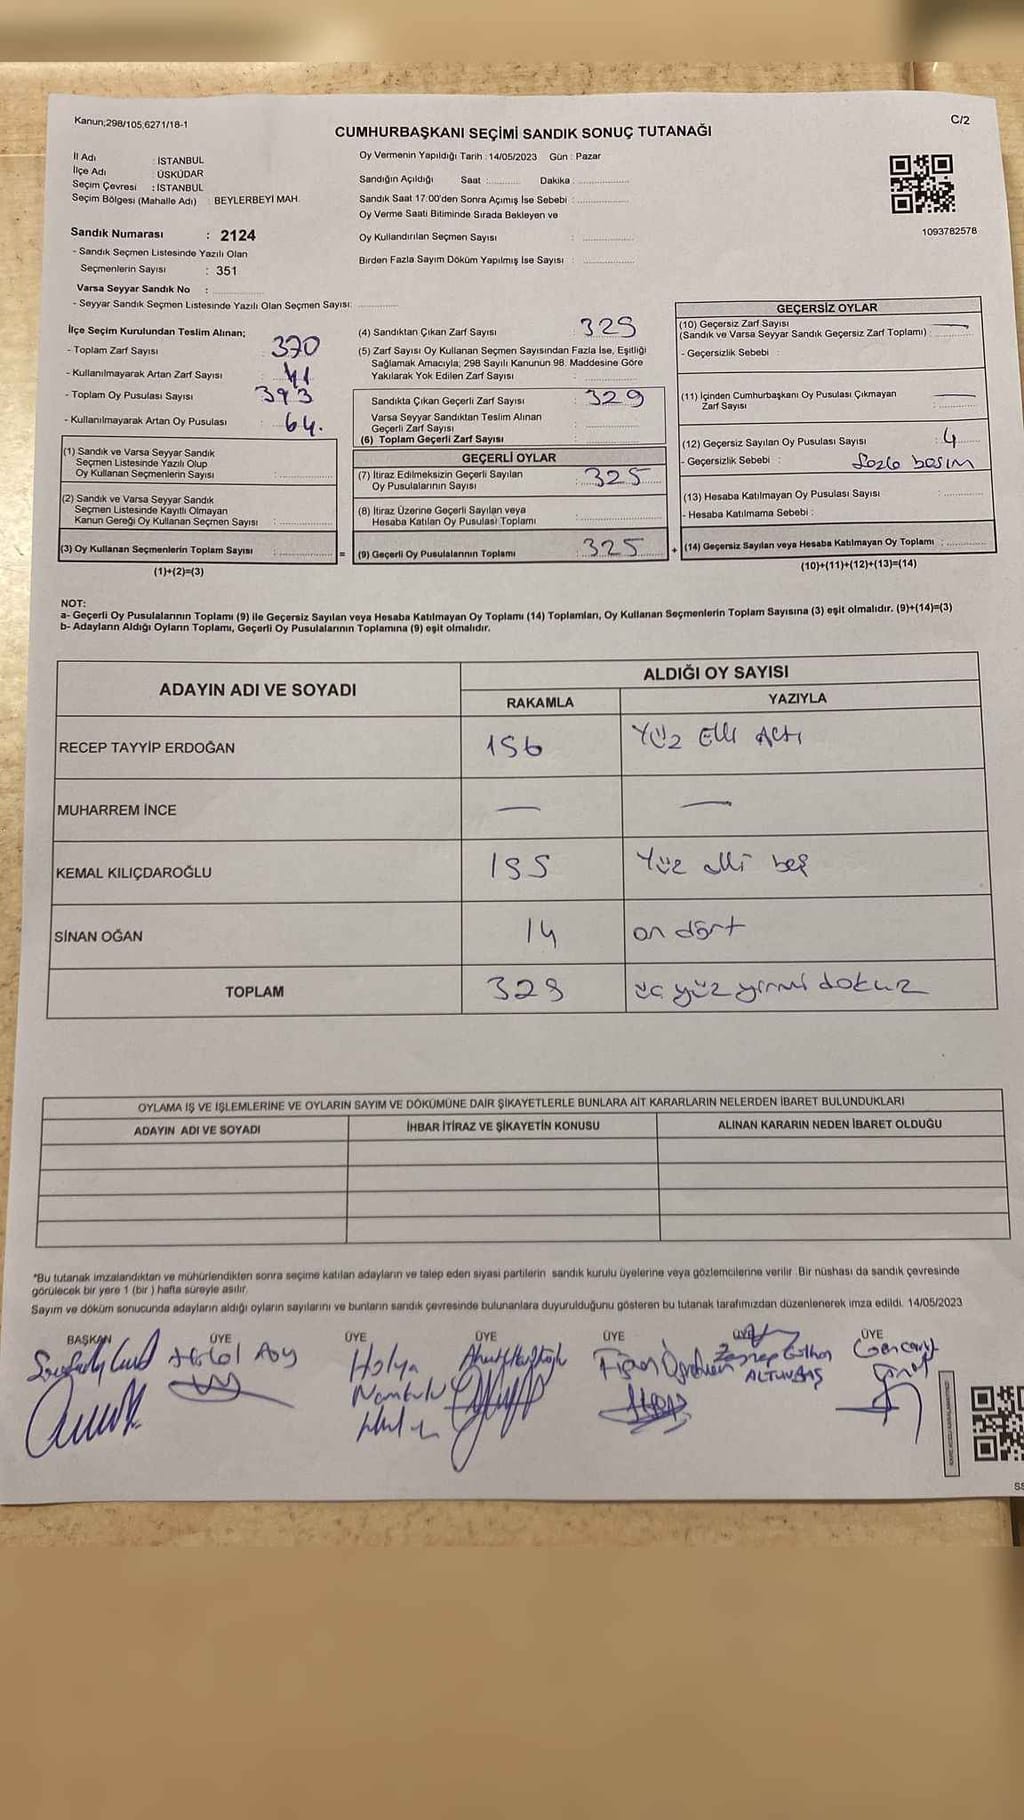 Kanun;298/105,6271/18-1
C/2
CUMHURBAŞKANI SEÇİMİ SANDIK SONUÇ TUTANAĞI
İl Adı : İSTANBUL
İlçe Adı : ÜSKÜDAR
Seçim Çevresi : İSTANBUL
Seçim Bölgesi (Mahalle Adı) : BEYLERBEYİ MAH.
Sandık Numarası : 2124
- Sandık Seçmen Listesinde Yazılı Olan
Seçmenlerin Sayısı : 351
Varsa Seyyar Sandık No :
- Seyyar Sandık Seçmen Listesinde Yazılı Olan Seçmen Sayısı:
Oy Vermenin Yapıldığı Tarih : 14/05/2023 Gün : Pazar
Sandığın Açıldığı Saat : Dakika :
Sandık Saat 17:00'den Sonra Açımış İse Sebebi :
Oy Verme Saati Bitiminde Sırada Bekleyen ve
Oy Kullandırılan Seçmen Sayısı :
Birden Fazla Sayım Döküm Yapılmış İse Sayısı :
1093782578
İlçe Seçim Kurulundan Teslim Alınan;
- Toplam Zarf Sayısı : 370
- Kullanılmayarak Artan Zarf Sayısı : 41
- Toplam Oy Pusulası Sayısı : 393
- Kullanılmayarak Artan Oy Pusulası : 64.
(1) Sandık ve Varsa Seyyar Sandık
Seçmen Listesinde Yazılı Olup
Oy Kullanan Seçmenlerin Sayısı :
(2) Sandık ve Varsa Seyyar Sandık
Seçmen Listesinde Kayıtlı Olmayan
Kanun Gereği Oy Kullanan Seçmen Sayısı :
(3) Oy Kullanan Seçmenlerin Toplam Sayısı : =
(1)+(2)=(3)
(4) Sandıktan Çıkan Zarf Sayısı : 329
(5) Zarf Sayısı Oy Kullanan Seçmen Sayısından Fazla İse, Eşitliği
Sağlamak Amacıyla; 298 Sayılı Kanunun 98. Maddesine Göre
Yakılarak Yok Edilen Zarf Sayısı :
Sandıkta Çıkan Geçerli Zarf Sayısı : 329
Varsa Seyyar Sandıktan Teslim Alınan
Geçerli Zarf Sayısı :
(6) Toplam Geçerli Zarf Sayısı :
GEÇERLİ OYLAR
(7) İtiraz Edilmeksizin Geçerli Sayılan
Oy Pusulalarının Sayısı : 325
(8) İtiraz Üzerine Geçerli Sayılan veya
Hesaba Katılan Oy Pusulası Toplamı :
(9) Geçerli Oy Pusulalarının Toplamı : 325 +
GEÇERSİZ OYLAR
(10) Geçersiz Zarf Sayısı
(Sandık ve Varsa Seyyar Sandık Geçersiz Zarf Toplamı) : —
- Geçersizlik Sebebi :
(11) İçinden Cumhurbaşkanı Oy Pusulası Çıkmayan
Zarf Sayısı : —
(12) Geçersiz Sayılan Oy Pusulası Sayısı : 4
- Geçersizlik Sebebi : basım
(13) Hesaba Katılmayan Oy Pusulası Sayısı :
- Hesaba Katılmama Sebebi :
(14) Geçersiz Sayılan veya Hesaba Katılmayan Oy Toplamı :
(10)+(11)+(12)+(13)=(14)
NOT:
a- Geçerli Oy Pusulalarının Toplamı (9) ile Geçersiz Sayılan veya Hesaba Katılmayan Oy Toplamı (14) Toplamları, Oy Kullanan Seçmenlerin Toplam Sayısına (3) eşit olmalıdır. (9)+(14)=(3)
b- Adayların Aldığı Oyların Toplamı, Geçerli Oy Pusulalarının Toplamına (9) eşit olmalıdır.
ADAYIN ADI VE SOYADI
ALDIĞI OY SAYISI
RAKAMLA YAZIYLA
RECEP TAYYİP ERDOĞAN 156 Yüz Elli Altı
MUHARREM İNCE — —
KEMAL KILIÇDAROĞLU 155 Yüz elli beş
SİNAN OĞAN 14 on dört
TOPLAM 329 üç yüz yirmi dokuz
OYLAMA İŞ VE İŞLEMLERİNE VE OYLARIN SAYIM VE DÖKÜMÜNE DAİR ŞİKAYETLERLE BUNLARA AİT KARARLARIN NELERDEN İBARET BULUNDUKLARI
ADAYIN ADI VE SOYADI İHBAR İTİRAZ VE ŞİKAYETİN KONUSU ALINAN KARARIN NEDEN İBARET OLDUĞU
*Bu tutanak imzalandıktan ve mühürlendikten sonra seçime katılan adayların ve talep eden siyasi partilerin sandık kurulu üyelerine veya gözlemcilerine verilir. Bir nüshası da sandık çevresinde
görülecek bir yere 1 (bir ) hafta süreyle asılır.
Sayım ve döküm sonucunda adayların aldığı oyların sayılarını ve bunların sandık çevresinde bulunanlara duyurulduğunu gösteren bu tutanak tarafımızdan düzenlenerek imza edildi. 14/05/2023
BAŞKAN ÜYE ÜYE ÜYE ÜYE ÜYE ÜYE
Hülya
ALTUNBAŞ